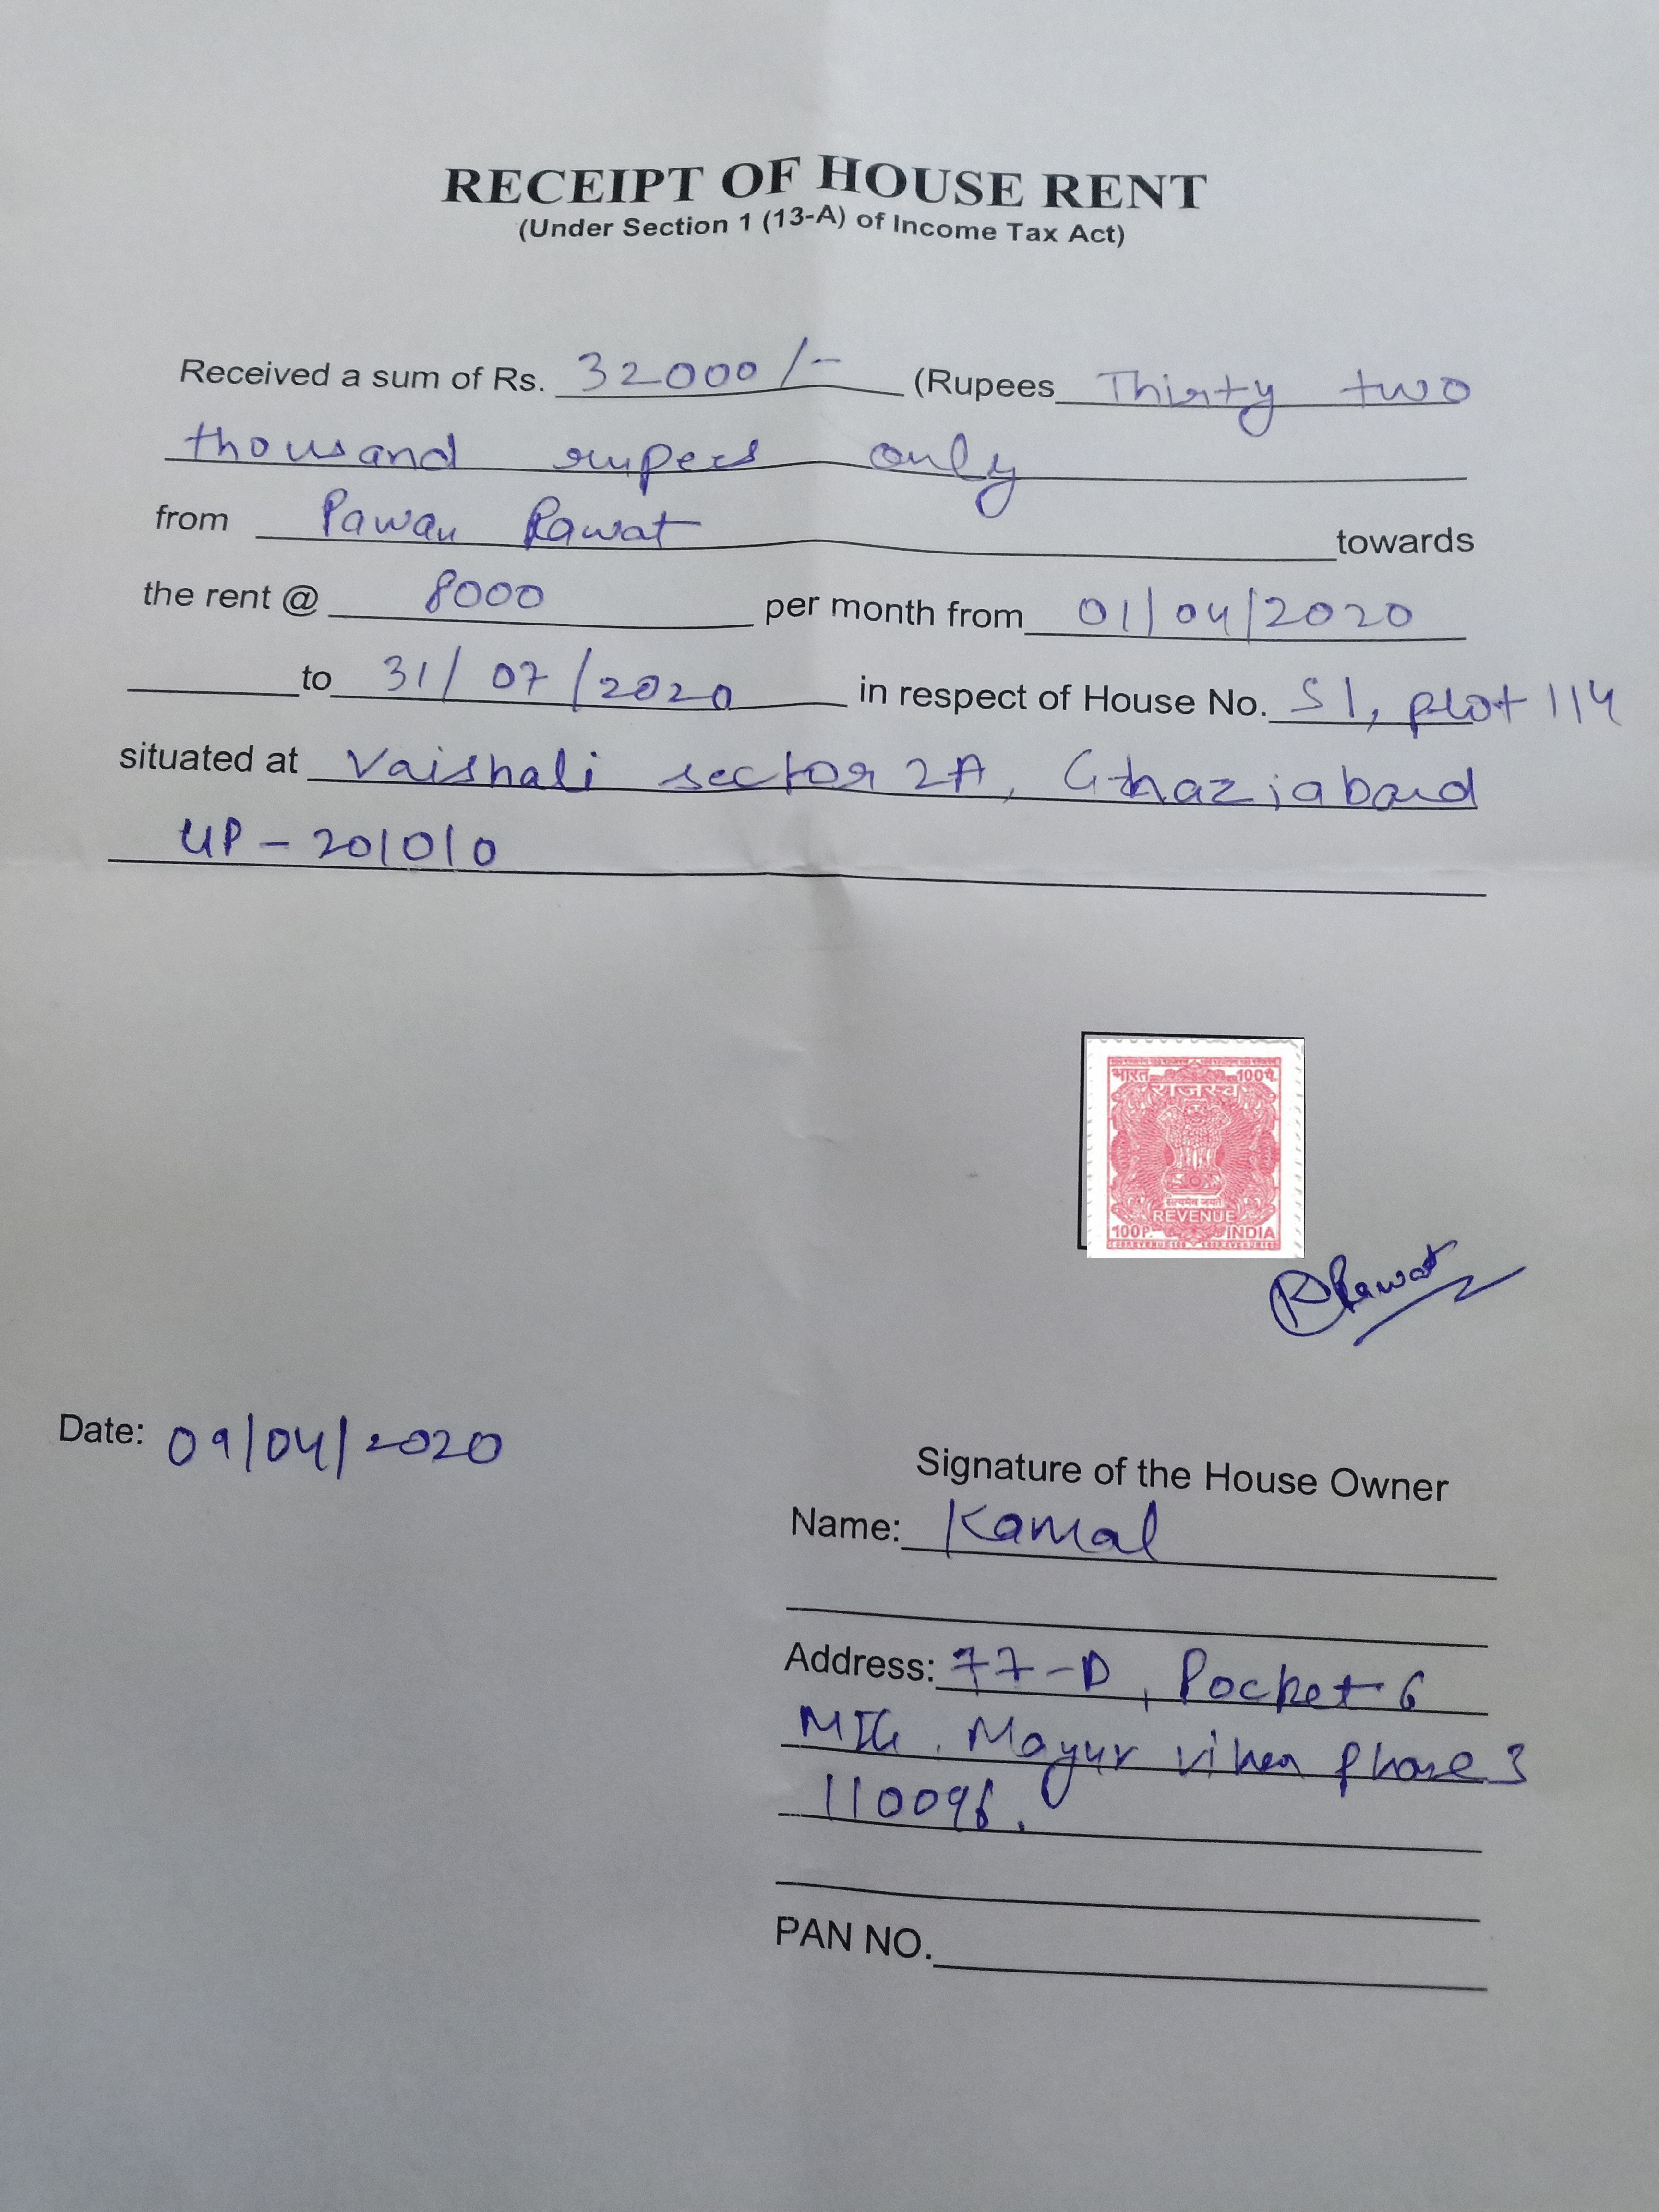 RECEIPT OF HOUSE RENT
(Under Section 1 (13-A) of Income Tax Act)
Received a sum of Rs. 32000/- (Rupees Thirty two
thousand rupees only
from Pawan Rawat towards
the rent @ 8000 per month from 01/04/2020
to 31/07/2020 in respect of House No. S1, plot 114
situated at Vaishali sector 2A, Ghaziabad
UP - 201010
भारत 100पै.
राजस्व
सत्यमेव जयते
REVENUE
100P. INDIA
Rawat
Date: 09/04/2020
Signature of the House Owner
Name: Kamal
Address: 77-D, Pocket 6
MIG. Mayur vihar phase 3
110096.
PAN NO.